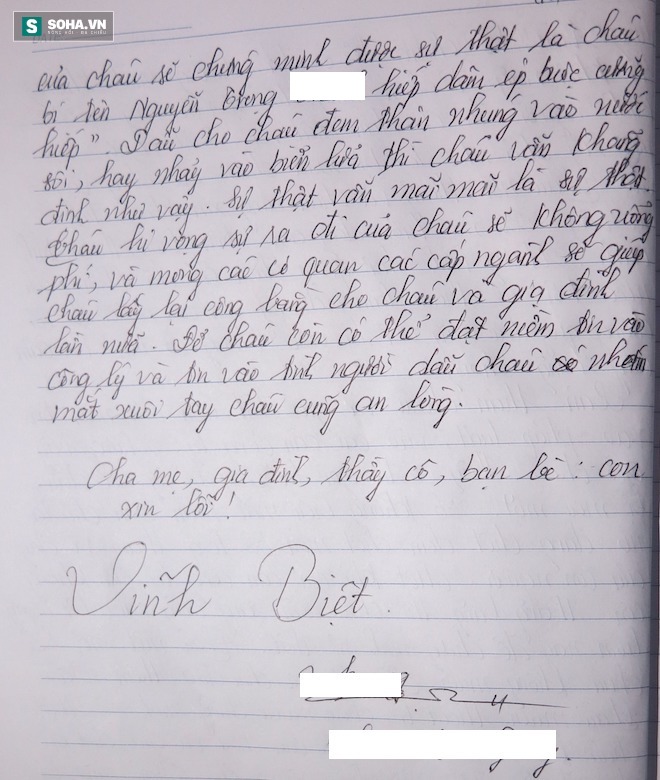 SOHA.VN
SỐNG HỎI - ĐA CHIỀU
của cháu sẽ chứng minh được sự thật là cháu
bị tên Nguyễn Trọng hiếp dâm ép bước cưỡng
hiếp". Dẫu cho cháu đem thân nhúng vào nước
sôi, hay nhảy vào biển lửa thì cháu vẫn khẳng
định như vậy. Sự thật vẫn mãi mãi là sự thật.
Cháu hi vọng sự ra đi của cháu sẽ không uổng
phí, và mong các cơ quan các cấp ngành sẽ giúp
cháu lấy lại công bằng cho cháu và gia đình
lần nữa. Để cháu còn có thể đặt niềm tin vào
công lý và tin vào tình người dẫu cháu có nhắm
mắt xuôi tay cháu cũng an lòng.
Cha mẹ, gia đình, thầy cô, bạn bè: con
xin lỗi!
Vĩnh Biệt.